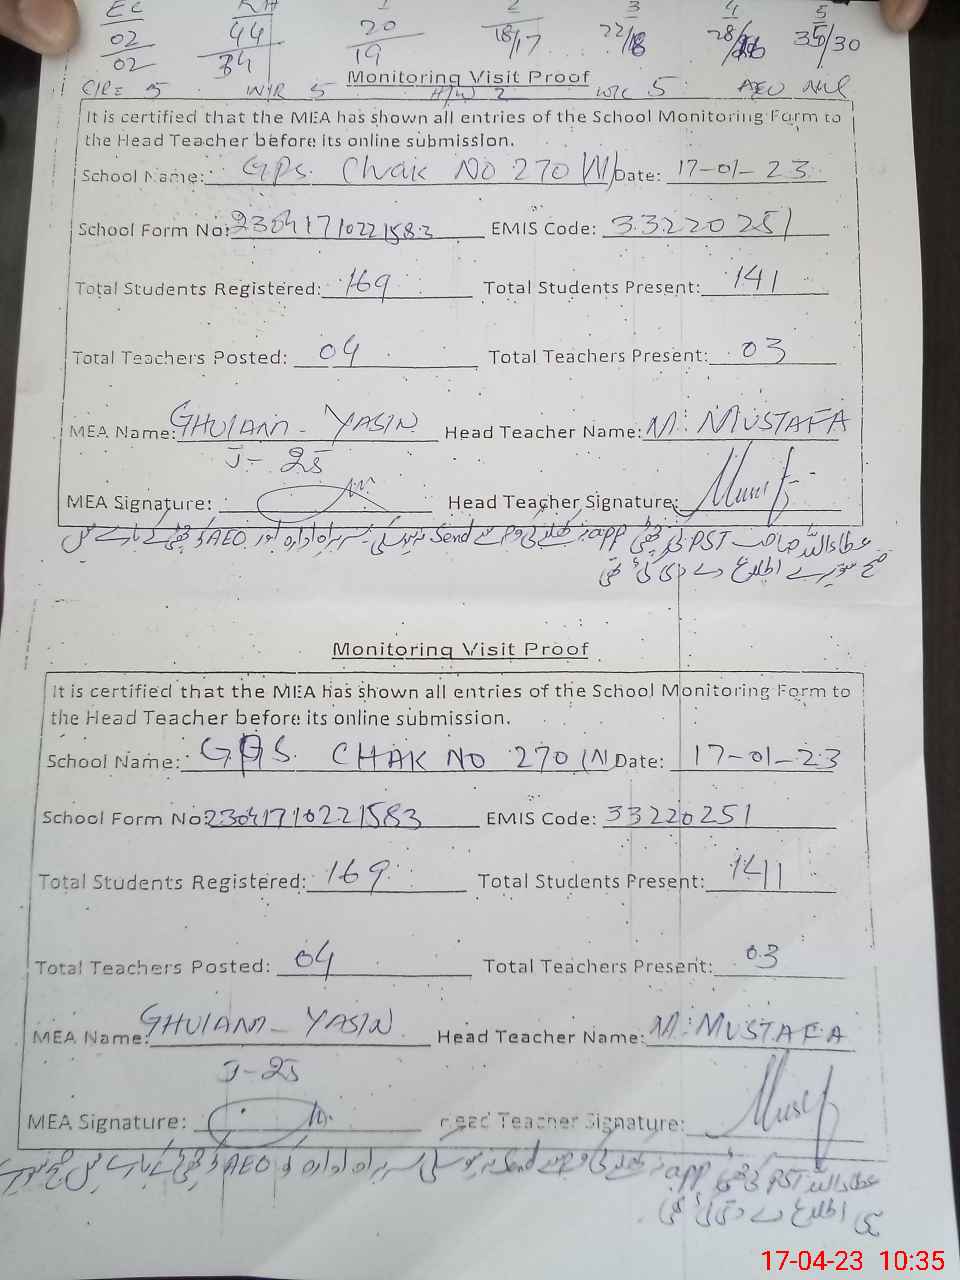 EC KH 1 2 3 4 5
02 44 20 18/17 22/18 28/ 35/30
02 34 19
Monitoring Visit Proof
C/R= 5 W/R 5 H/W 2 W/C 5 AEO Nil
It is certified that the MEA has shown all entries of the School Monitoring Form to
the Head Teacher before its online submission.
School Name: GPS. Chak No 270 Date: 17-01-23
School Form No: 23041710221583 EMIS Code: 33220251
Total Students Registered: 169 Total Students Present: 141
Total Teachers Posted: 04 Total Teachers Present: 03
MEA Name: GHULAM - YASIN Head Teacher Name: M. MUSTAFA
J-25
MEA Signature: Head Teacher Signature:
عطاءاللہ صاحب PST کی چھٹی app send سربراہ ادارہ اور AEO کو چھٹی کے بارے میں
صبح سویرے اطلاع دے دی گئی تھی
Monitoring Visit Proof
It is certified that the MEA has shown all entries of the School Monitoring Form to
the Head Teacher before its online submission.
School Name: GPS. CHAK NO 270 Date: 17-01-23
School Form No: 23041710221583 EMIS Code: 33220251
Total Students Registered: 169 Total Students Present: 141
Total Teachers Posted: 04 Total Teachers Present: 03
MEA Name: GHULAM - YASIN Head Teacher Name: M. MUSTAFA
J-25
MEA Signature: Head Teacher Signature:
عطاءاللہ PST کی چھٹی app send سربراہ ادارہ کو AEO کو چھٹی کے بارے میں صبح سویرے
ہی اطلاع دے دی گئی تھی
17-04-23 10:35